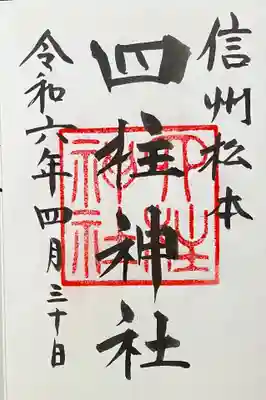 信州松本
四柱神社
令和六年四月三十日